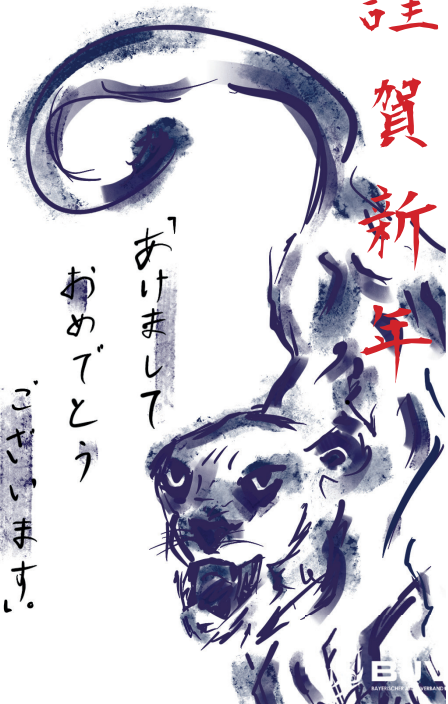 謹賀新年
「あけまして
おめでとう
ございます」。
BJV
BAYERISCHER